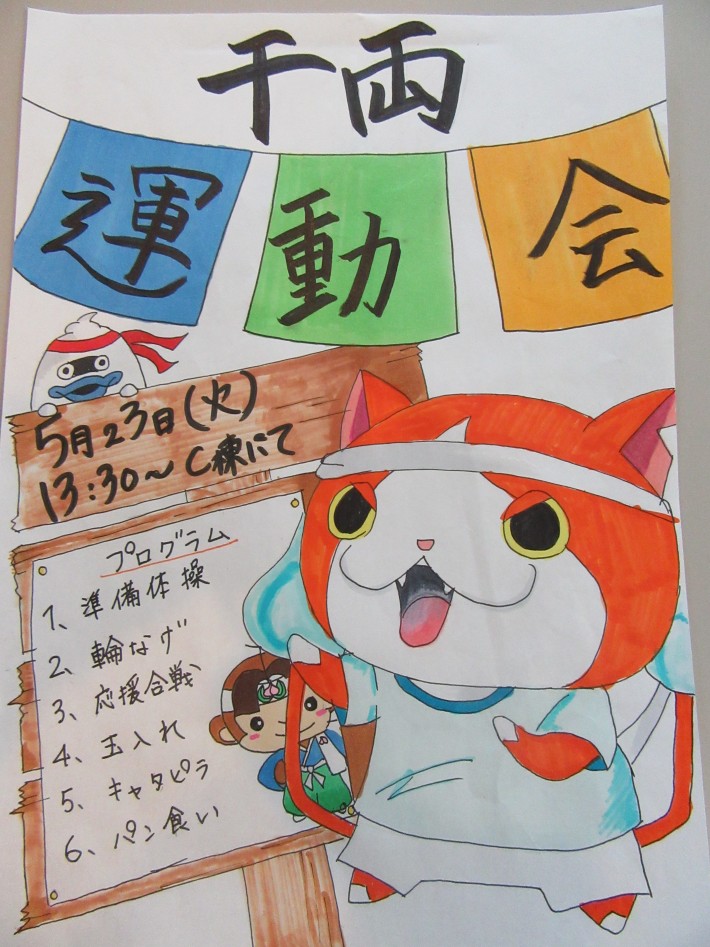 千両
運動会
5月23日(火)
13:30〜C棟にて
プログラム
1、準備体操
2、輪なげ
3、応援合戦
4、玉入れ
5、キャタピラ
6、パン食い